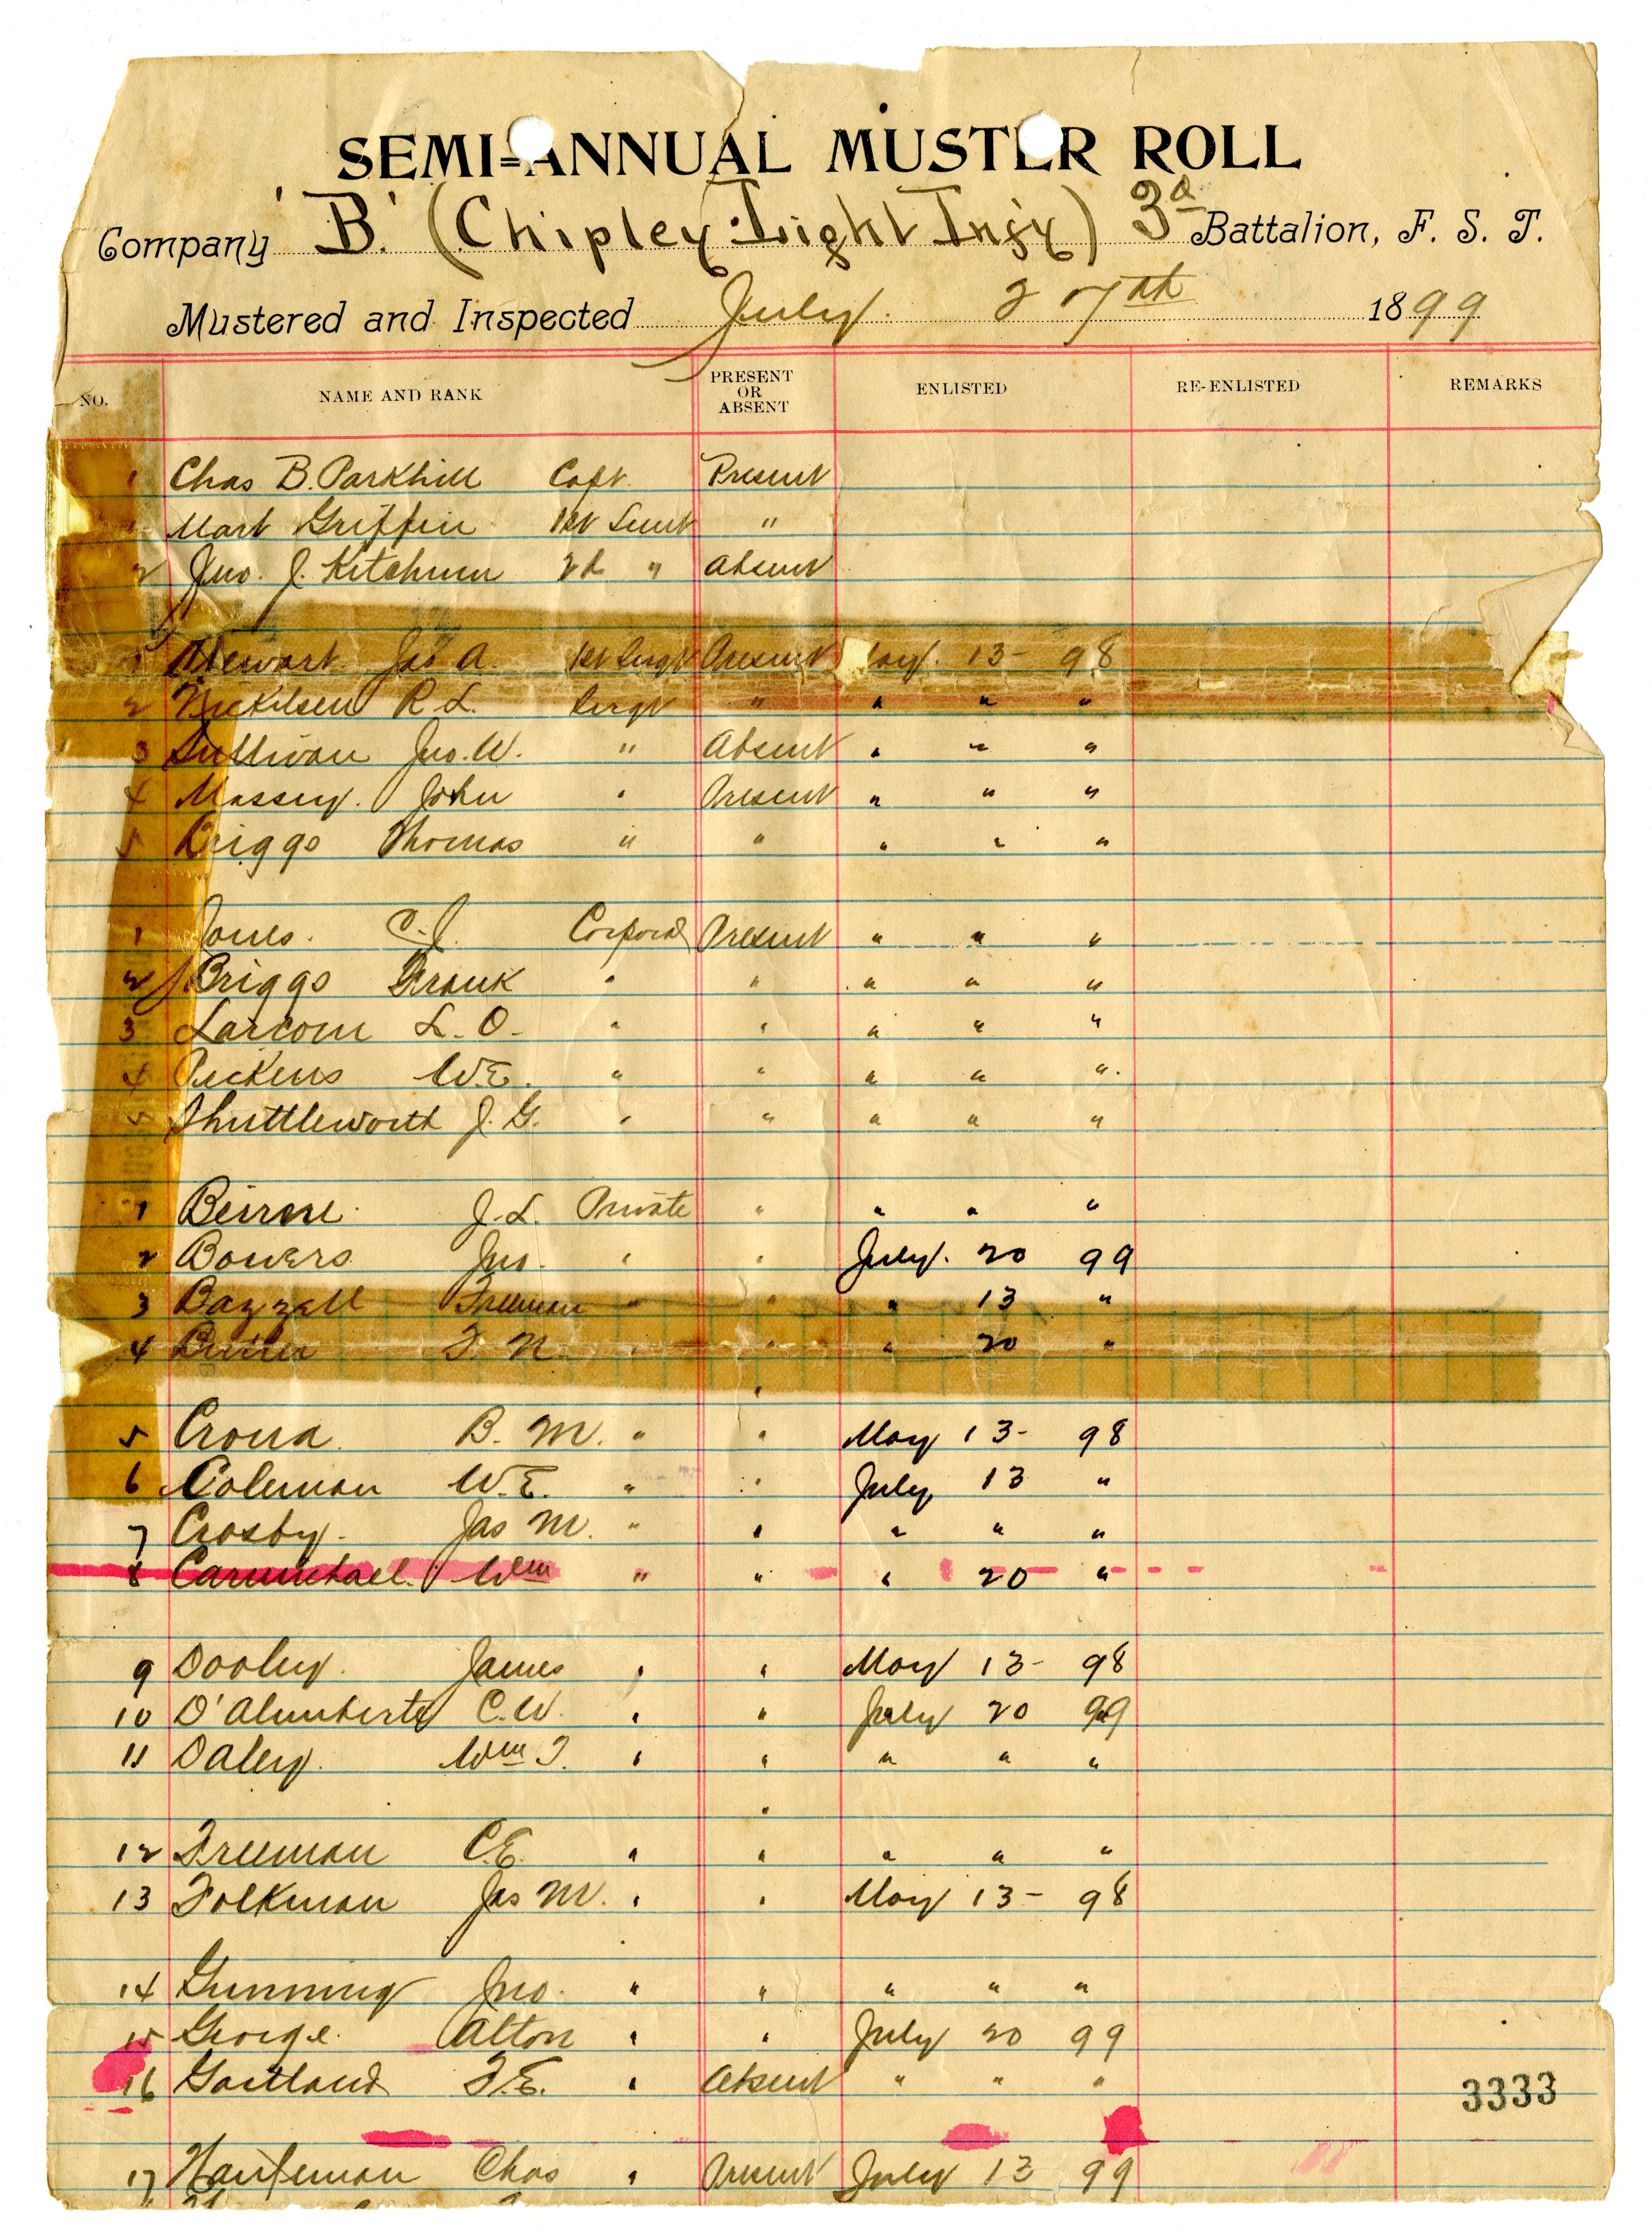 SEMI=ANNUAL MUSTER ROLL
Company 'B.' (Chipley Light Inf'y) 3d Battalion, F. S. T.
Mustered and Inspected July. 27th 1899
NO. NAME AND RANK PRESENT OR ABSENT ENLISTED RE-ENLISTED REMARKS
1 Chas B. Parkhill Capt. Present
1 Mart Griffin 1st Lieut "
2 Jno. J. Kitchen 2d " Absent
1 Stewart Jas A. 1st Sergt Present May. 13- 98
2 R L. Sergt " " " "
3 Sullivan Jno. W. " Absent " " "
4 Massey. John " Present " " "
5 Briggs Thomas " " " " "
1 Jones. C. J. Corporal Present " " "
2 Briggs Frank " " " " "
3 Larcom L. O. " " " " "
4 Pickens W. E. " " " " "
5 Shuttleworth J. G. " " " " "
1 Beirne. J. L. Private " " " "
2 Bowers Jno. " " July. 20 99
3 Bazzell Freeman " " " 13 "
4 " " " 20 "
5 Crona. B. M. " " May 13- 98
6 Coleman W. E. " " July 13 "
7 Crosby. Jas M. " " " " "
8 Carmichael. Wm " " " 20 "
9 Dooley. James " " May 13- 98
10 D'Alemberte C. W. " " July 20 99
11 Daley. Wm T. " " " " "
12 Freeman C. E. " " " " "
13 Folkman Jas M. " " May 13- 98
14 Gunning Jno. " " " " "
15 George. Alton " " July 20 99
16 Gartland F. E. " Absent " " "
3333
17 Chas " Present July 13 99